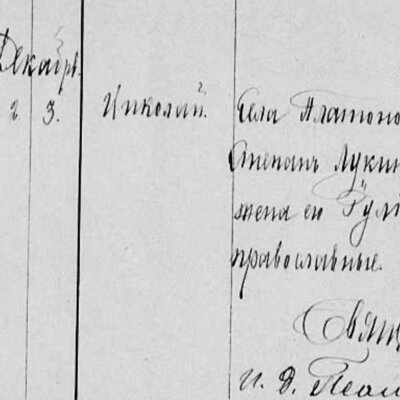 Декабрь
2. 3. Николай. Села Платоно
Степанъ Лукин
жена ею Гул
православные.
Свящ
и. д. Псал